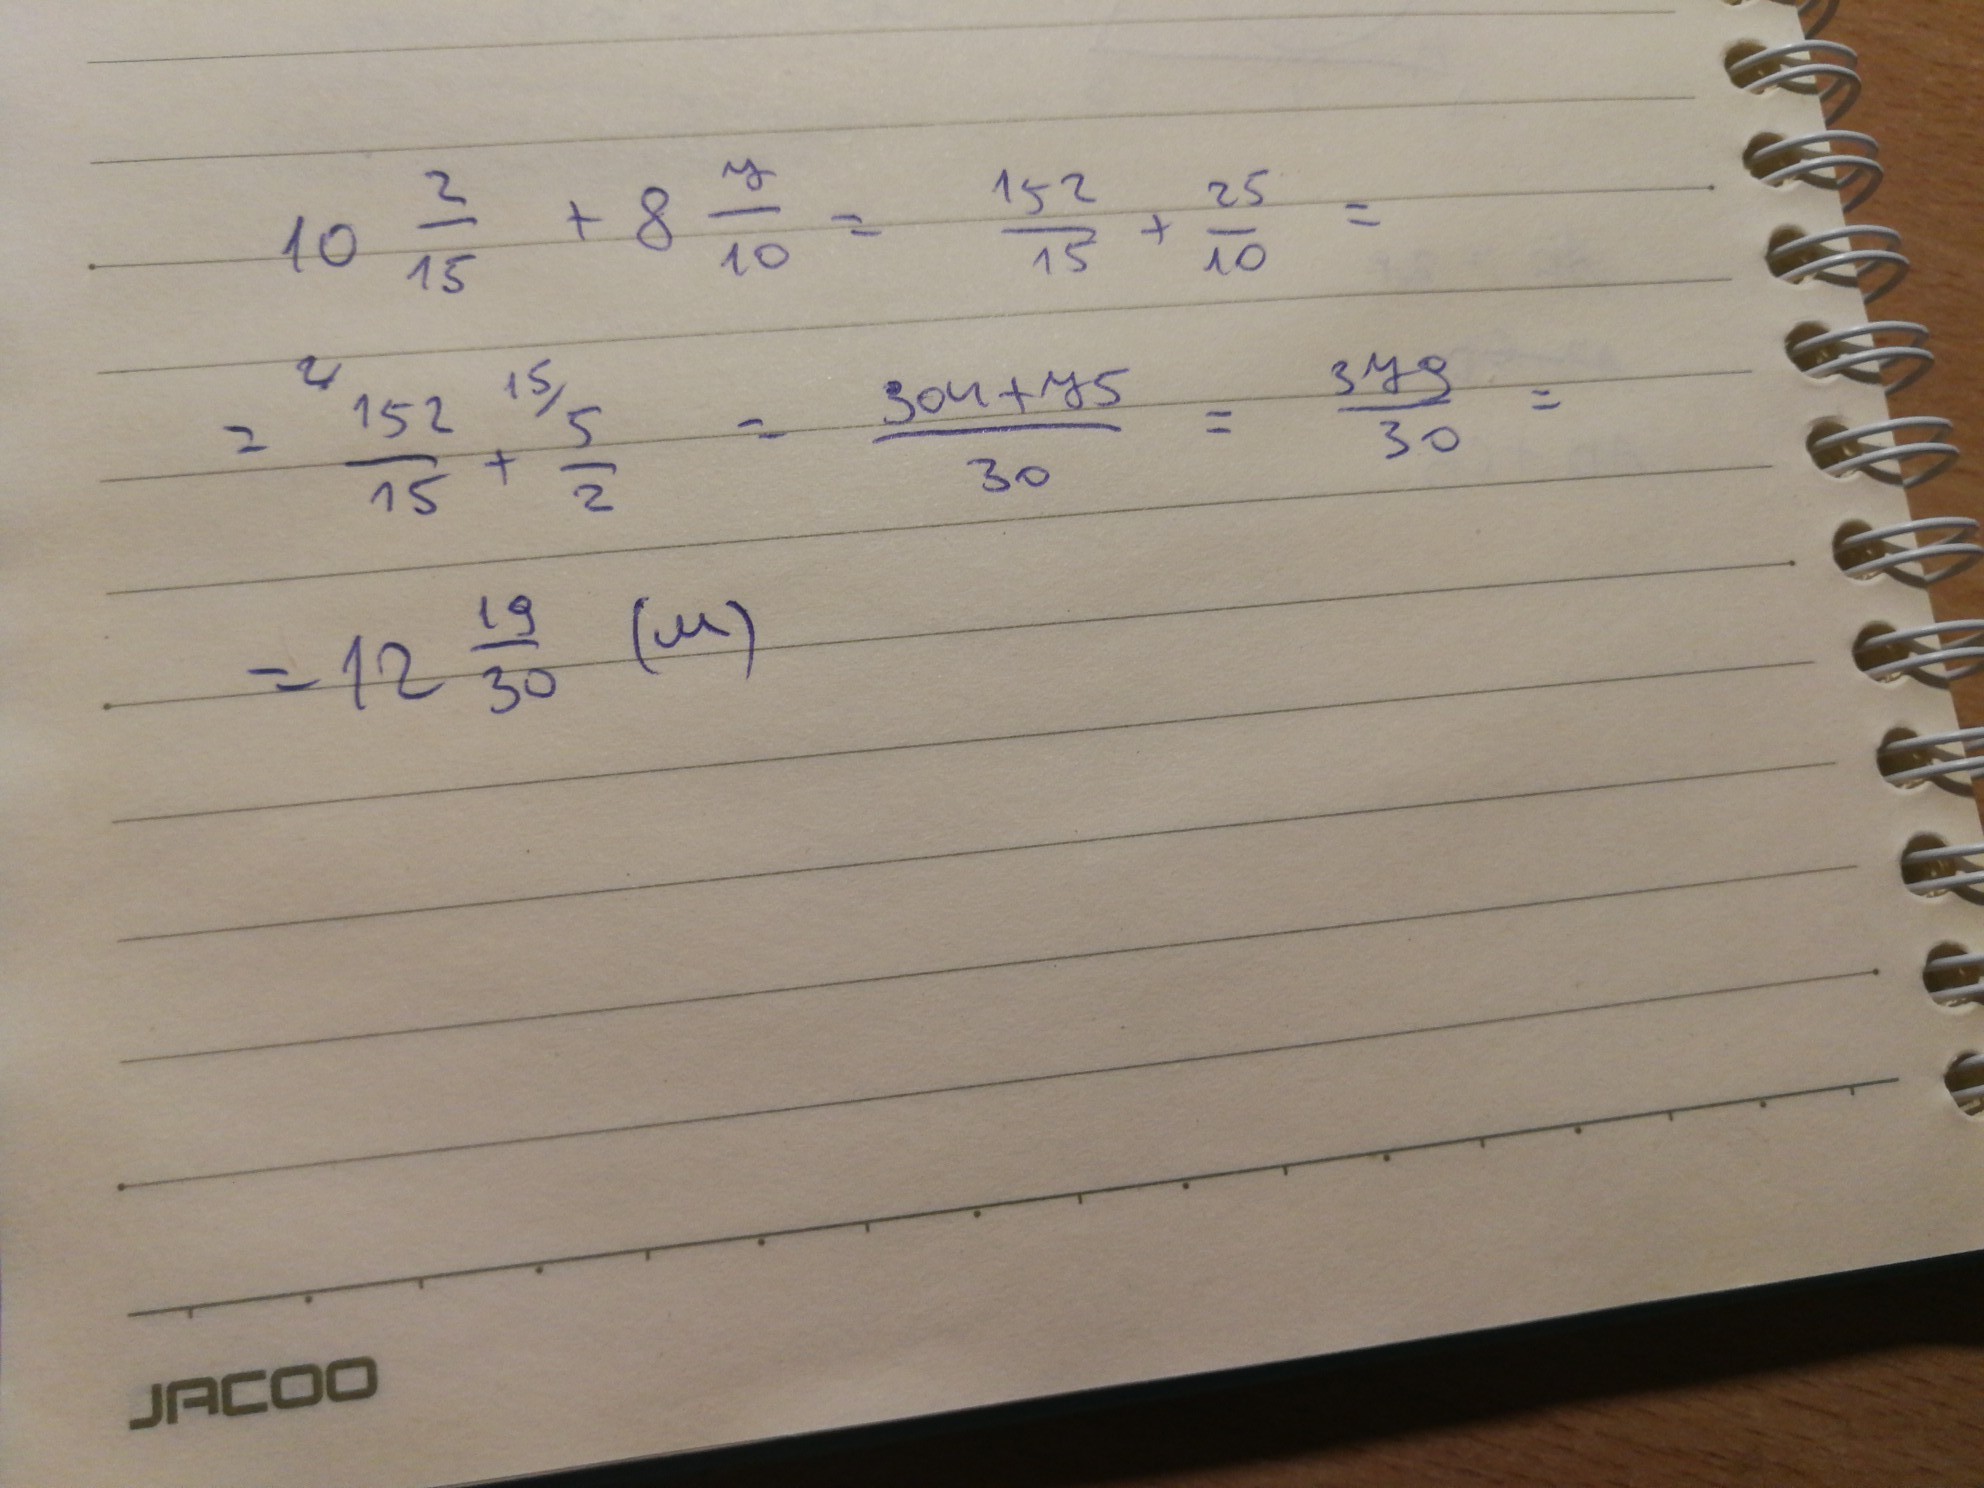 10 2/15 + 8 7/10 = 152/15 + 25/10 =
= 2/ 152/15 + 15/ 5/2 = 304+75/30 = 379/30 =
= 12 19/30 (м)
JACOO